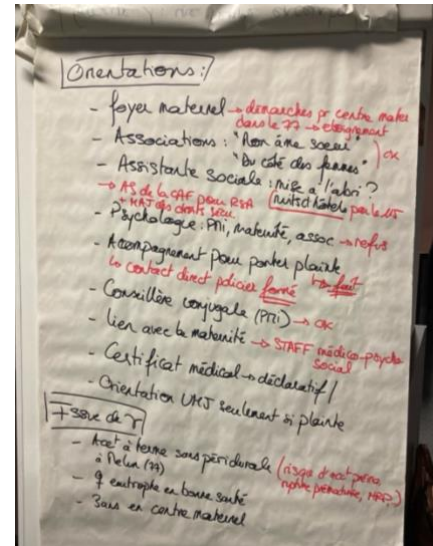 Orientations:/
- foyer maternel → démarches pr centre mater
dans le 77 → éloignement
- Associations : "Mon âme soeur"
"Du côté des femmes" ) OK
- Assistante sociale : mise à l'abri ?
→ AS de la CAF pour RSA (nuits d'hôtel) par le
+ MAJ des droits sécu
- Psychologue : PMI, maternité, assoc → refus
- Accompagnement pour porter plainte
↳ contact direct policier formé ↳ fait
- Conseillère conjugale (PMI) → OK
- lien avec la maternité → STAFF médico-psycho
social
- Certificat médical → déclaratif /
- Orientation UMJ seulement si plainte
+ssue de
- Acct à terme sans péridurale (risque d'acct préma
à Melun (77) rupture prématurée, HRP.)
- ♀ eutrophe en bonne santé
- 3 ans en centre maternel